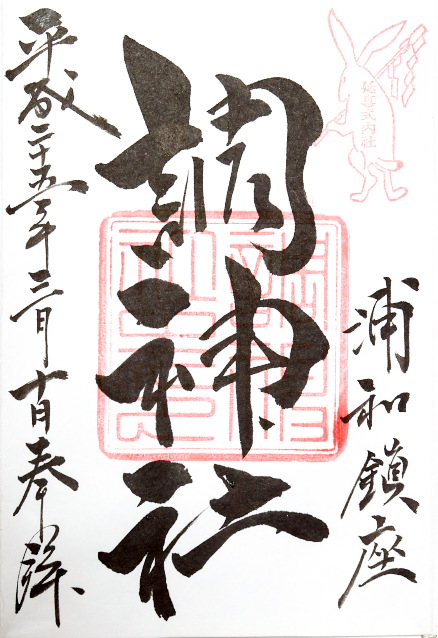 延喜式内社
浦和鎮座
調神社
平成二十五年三月十日奉拝